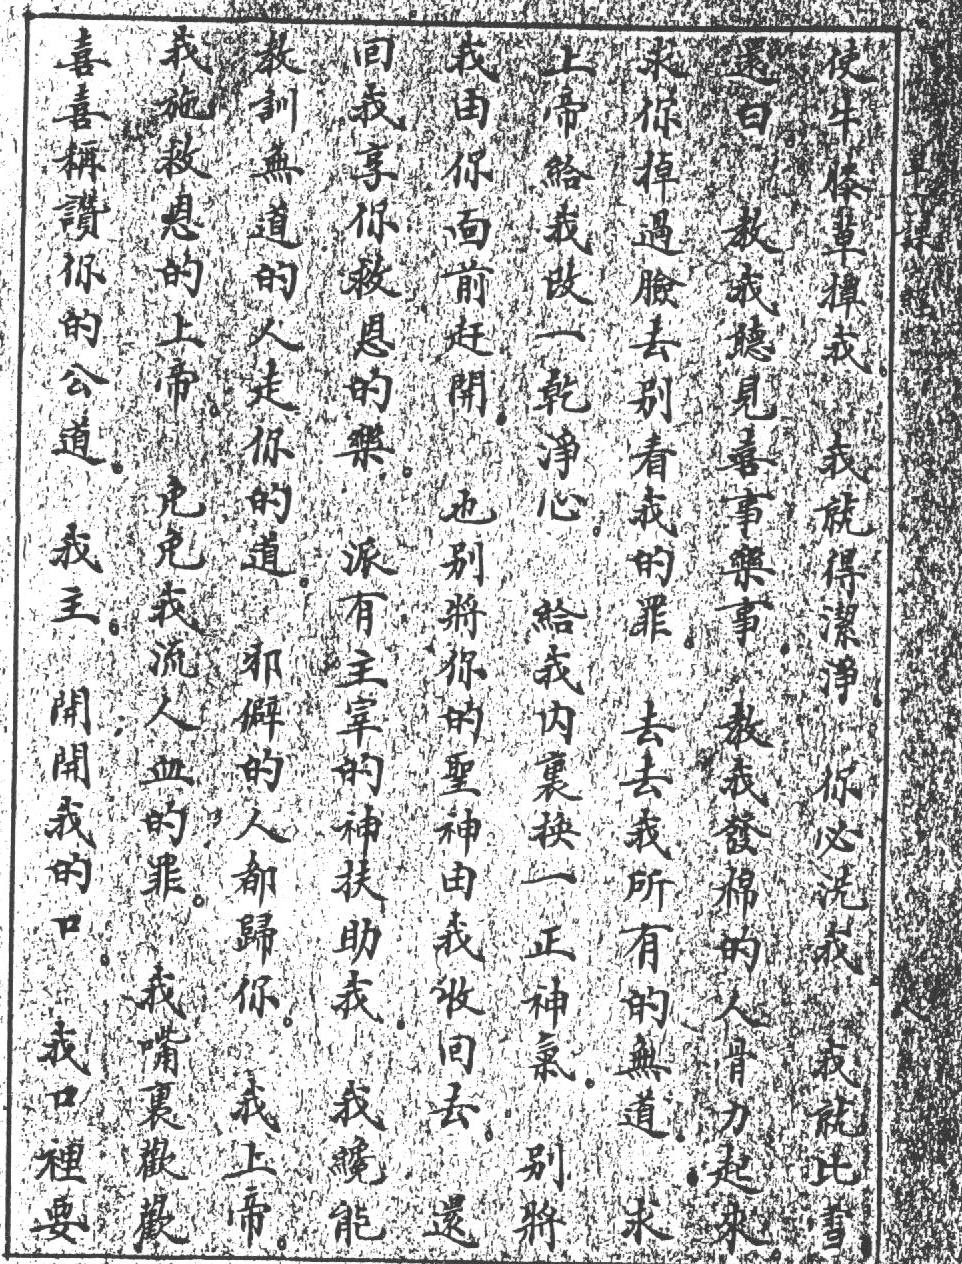 使牛膝草撣我。我就得潔淨。你必洗我。我就比雪
還白。教我聽見喜事樂事。教我發糠的人骨力起來。
求你掉過臉去別看我的罪。去去我所有的無道。求
上帝給我改一乾淨心。給我內裏換一正神氣。別將
我由你面前赶開。也別將你的聖神由我收回去。還
回我享你救恩的樂。派有主宰的神扶助我。我纔能
教訓無道的人走你的道。邪僻的人都歸你。我上帝。
我施救恩的上帝。免免我流人血的罪。我嘴裏歡歡
喜喜稱讚你的公道。我主。開開我的口。我口裡要